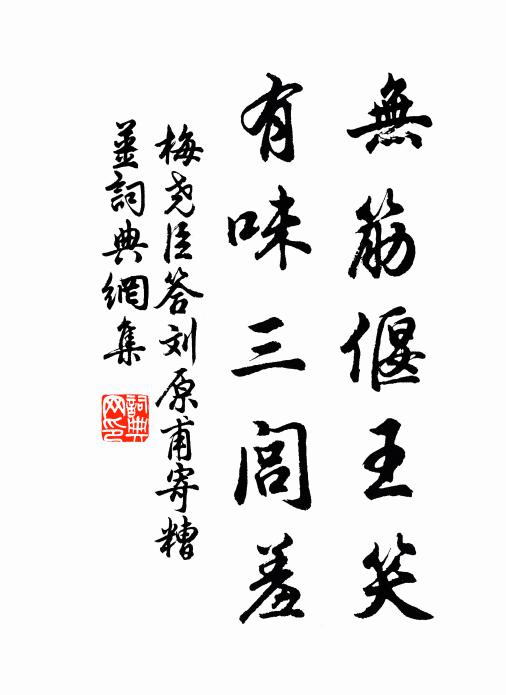 無筋偃王笑
有味三閭羞
梅尧臣答刘原甫寄糟
薑詞典網集
詞典
网印